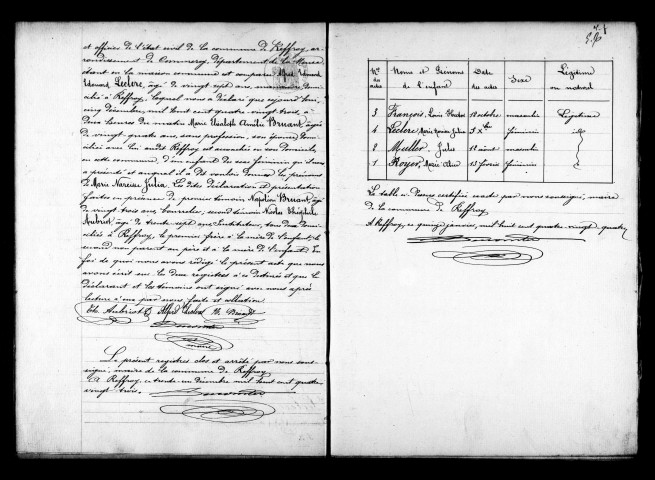 et officier de l'état civil de la commune de Reffroy, ar-
rondissement de Commercy, Département de la Meuse
étant en la maison commune est comparu Alfred Edouard
Leclerc, âgé de vingt sept ans, domi-
cilié à Reffroy, lequel nous a déclaré que aujourd'hui,
cinq Décembre, mil huit cent quatre-vingt-trois à
deux heures du matin Marie Elisabeth Amélie Bruant, âgée
de vingt-quatre ans, sans profession, son épouse domi-
ciliée avec lui audit Reffroy est accouchée en son domicile
en cette commune, d'un enfant de sexe féminin qu'il nous
a présenté et auquel il a dit vouloir donner les prénoms
de Marie Narcisse Julia. Les dites déclaration et présentation
faites en présence de premier témoin Napoléon Bruant, âgé
de vingt trois ans, second témoin Nicolas Théophile
Aubriot, âgé de trente-sept ans, Instituteur, tous deux domi-
ciliés à Reffroy, le premier frère à la mère de l'enfant, le
second non parent au père et à la mère de l'enfant. En
foi de quoi nous avons rédigé le présent acte que nous
avons écrit sur les deux registres à ce destinés et que le
déclarant et les témoins ont signé avec nous après
lecture à eux par nous faite et collation
Th. Aubriot Alfred Leclerc N. Bruant
maire
Le présent registre clos et arrêté par nous sous-
signé, maire de la commune de Reffroy
A Reffroy, ce trente-un décembre mil huit cent quatre-
vingt-trois.
Nos des actes Noms et Prénoms de l'enfant Date des actes Sexe Légitime ou naturel
3 François, Louis 12 octobre masculin Légitime
4 Leclerc, Marie Narcisse Julia 5 Xbre féminin
2 Muller Jules 12 août masculin
1 Royer, Marie 13 février féminin
La table ci-dessus certifiée exacte par nous soussigné, maire
de la commune de Reffroy
A Reffroy, ce quinze janvier, mil huit cent quatre-vingt-quatre